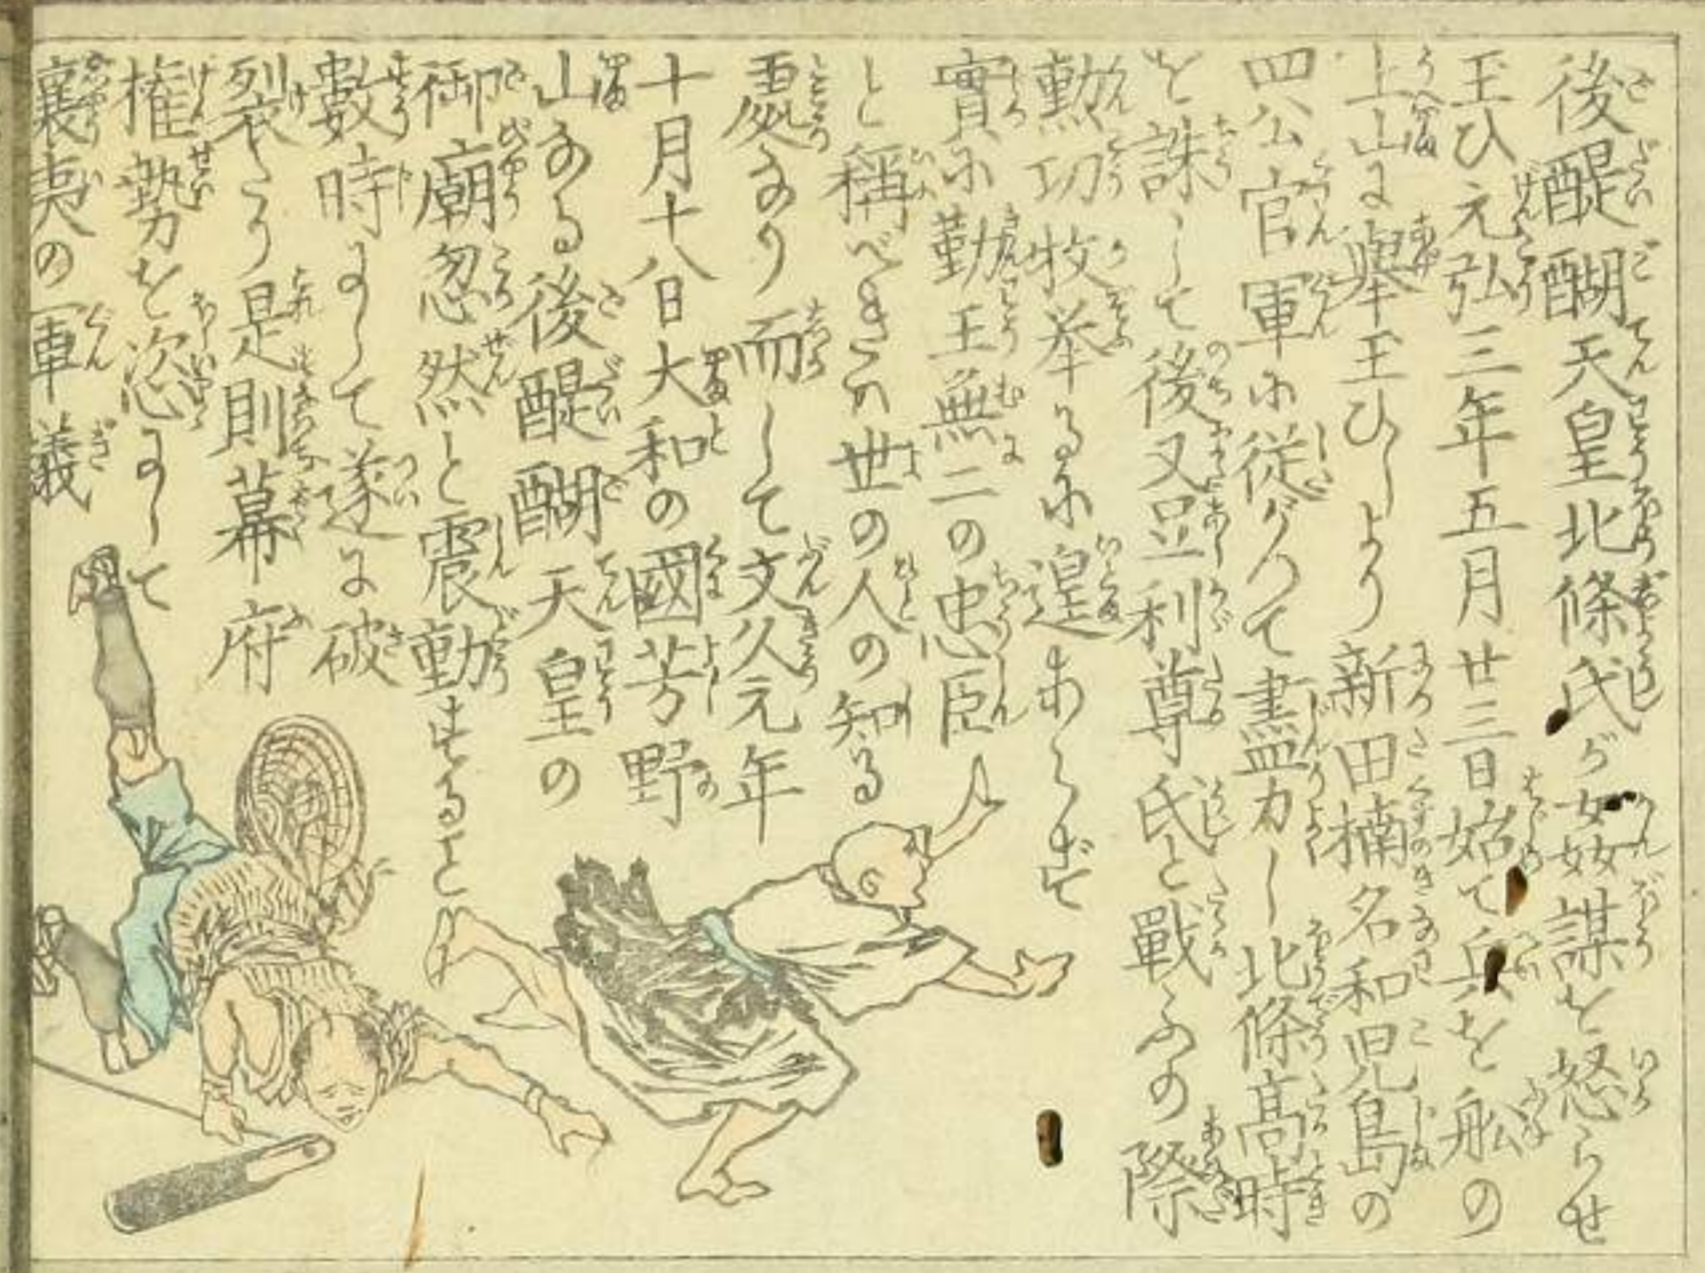 後醍醐天皇北條氏が姦謀を怒らせ
玉ひ元弘三年五月廿三日始て兵を舩の
上山に擧王ひしより新田楠名和児島の
四公官軍に従がつて盡力し北條高時
を誅して後又足利尊氏と戰ふの際
勲功枚挙るに遑あらず
實に勤王無二の忠臣
と稱べきハ世の人の知る
處なり而して文久元年
十月十八日大和の國芳野
山なる後醍醐天皇の
御廟忽然と震動すること
數時にして遂に破
裂たり是則幕府
権勢を恣にして
襄夷の軍議